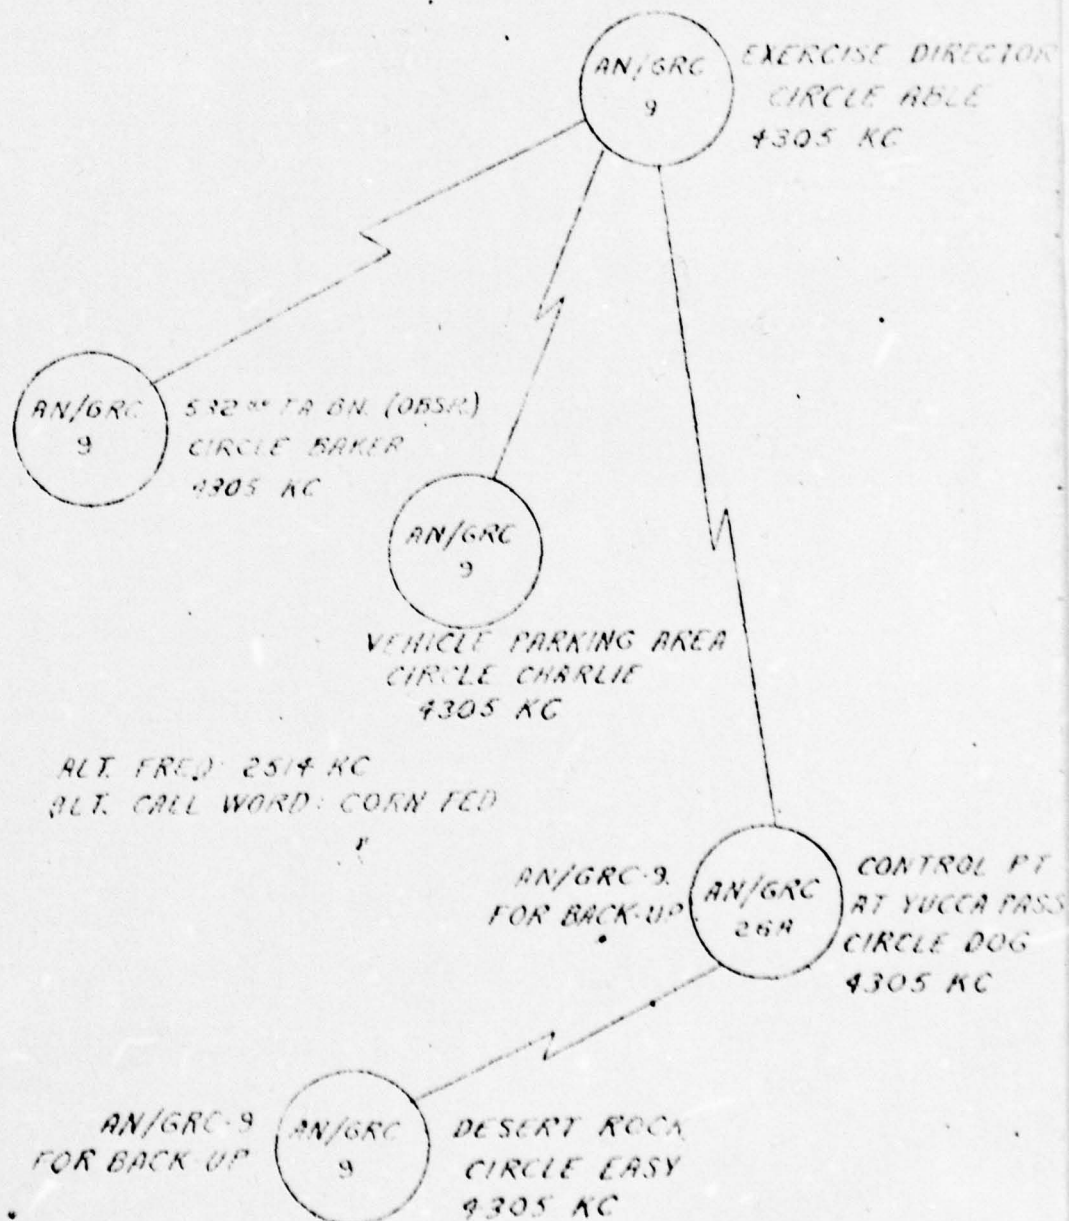 AN/GRC
9
EXERCISE DIRECTOR
CIRCLE ABLE
4305 KC
AN/GRC
9
532ND FA BN. (OBSR.)
CIRCLE BAKER
4305 KC
AN/GRC
9
VEHICLE PARKING AREA
CIRCLE CHARLIE
4305 KC
ALT. FREQ: 2514 KC
ALT. CALL WORD: CORN FED
AN/GRC-9
FOR BACK-UP
AN/GRC
26A
CONTROL PT
AT YUCCA PASS
CIRCLE DOG
4305 KC
AN/GRC-9
FOR BACK-UP
AN/GRC
9
DESERT ROCK
CIRCLE EASY
4305 KC